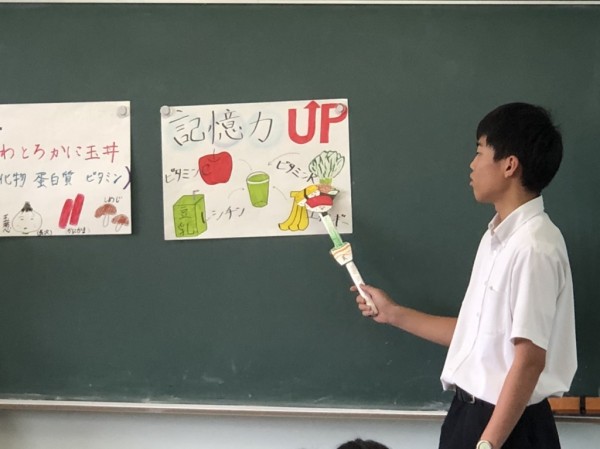 わとろかに玉丼
化物 蛋白質 ビタミン)
しめじ
かにかま
記憶力 UP
ビタミンC
ビタミン
豆乳
レシチン